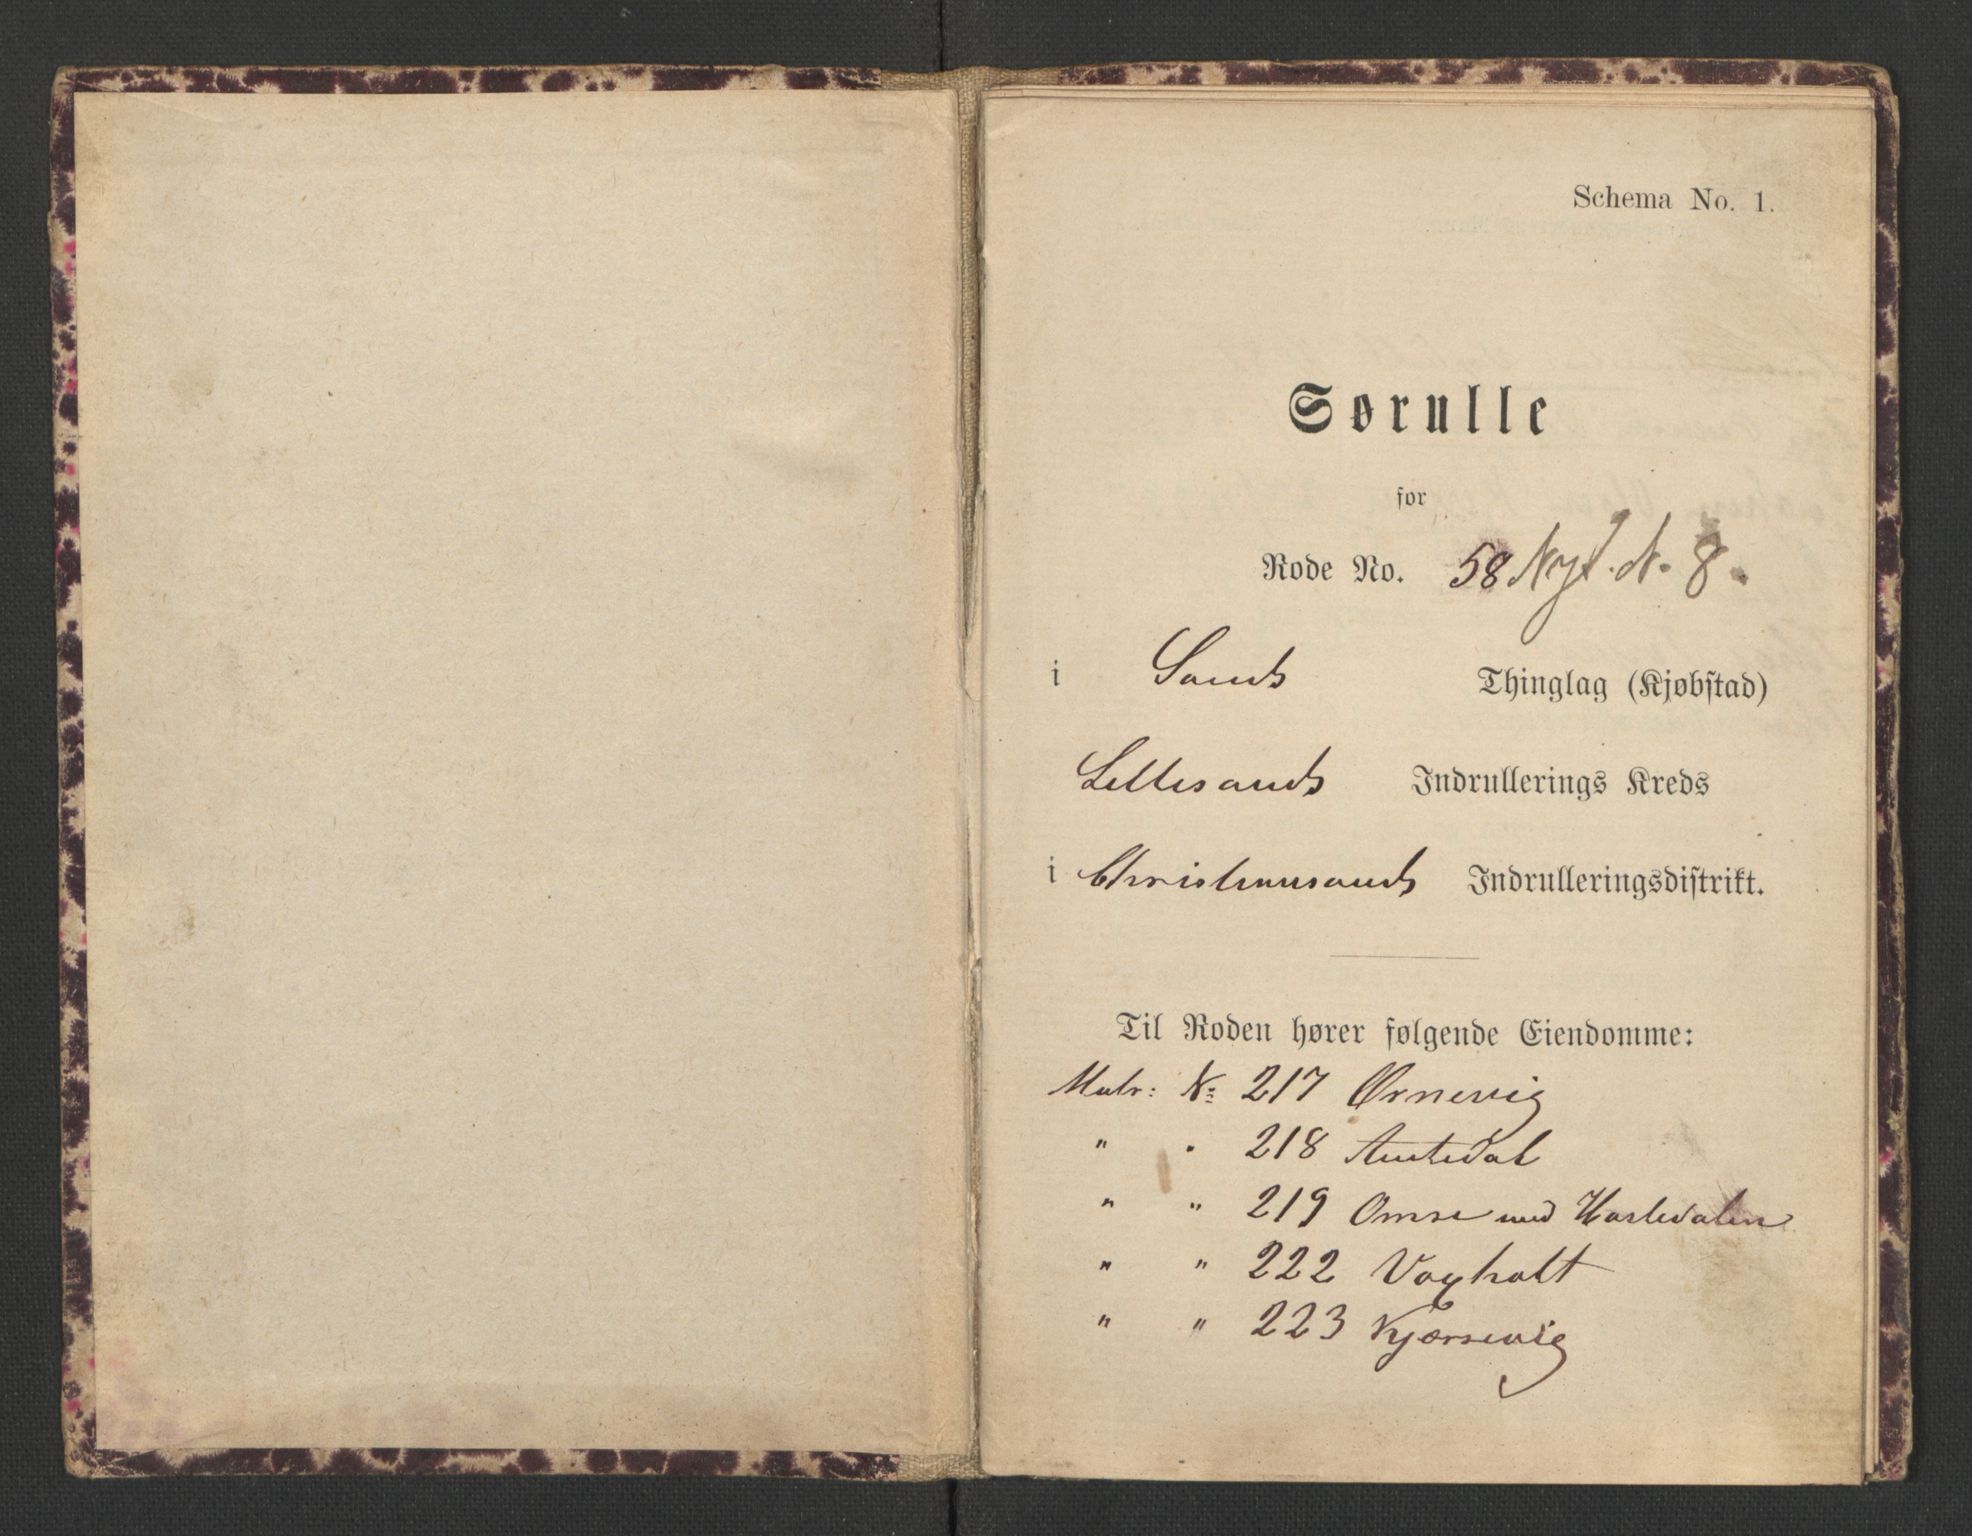 Schema No. 1.
Sørulle
for
Rode No. 58 Nyt N. 8.
i Sands Thinglag (Kjøbstad)
Lillesands Indrullerings Kreds
i Christiansands Indrulleringsdistrikt.
Til Roden hører følgende Eiendomme:
Matr: No 217 Ørnevig
" " 218 Amtedal
" " 219 Omre med Hastedalen
" " 222 Vaxholt
" " 223 Kjørsevig